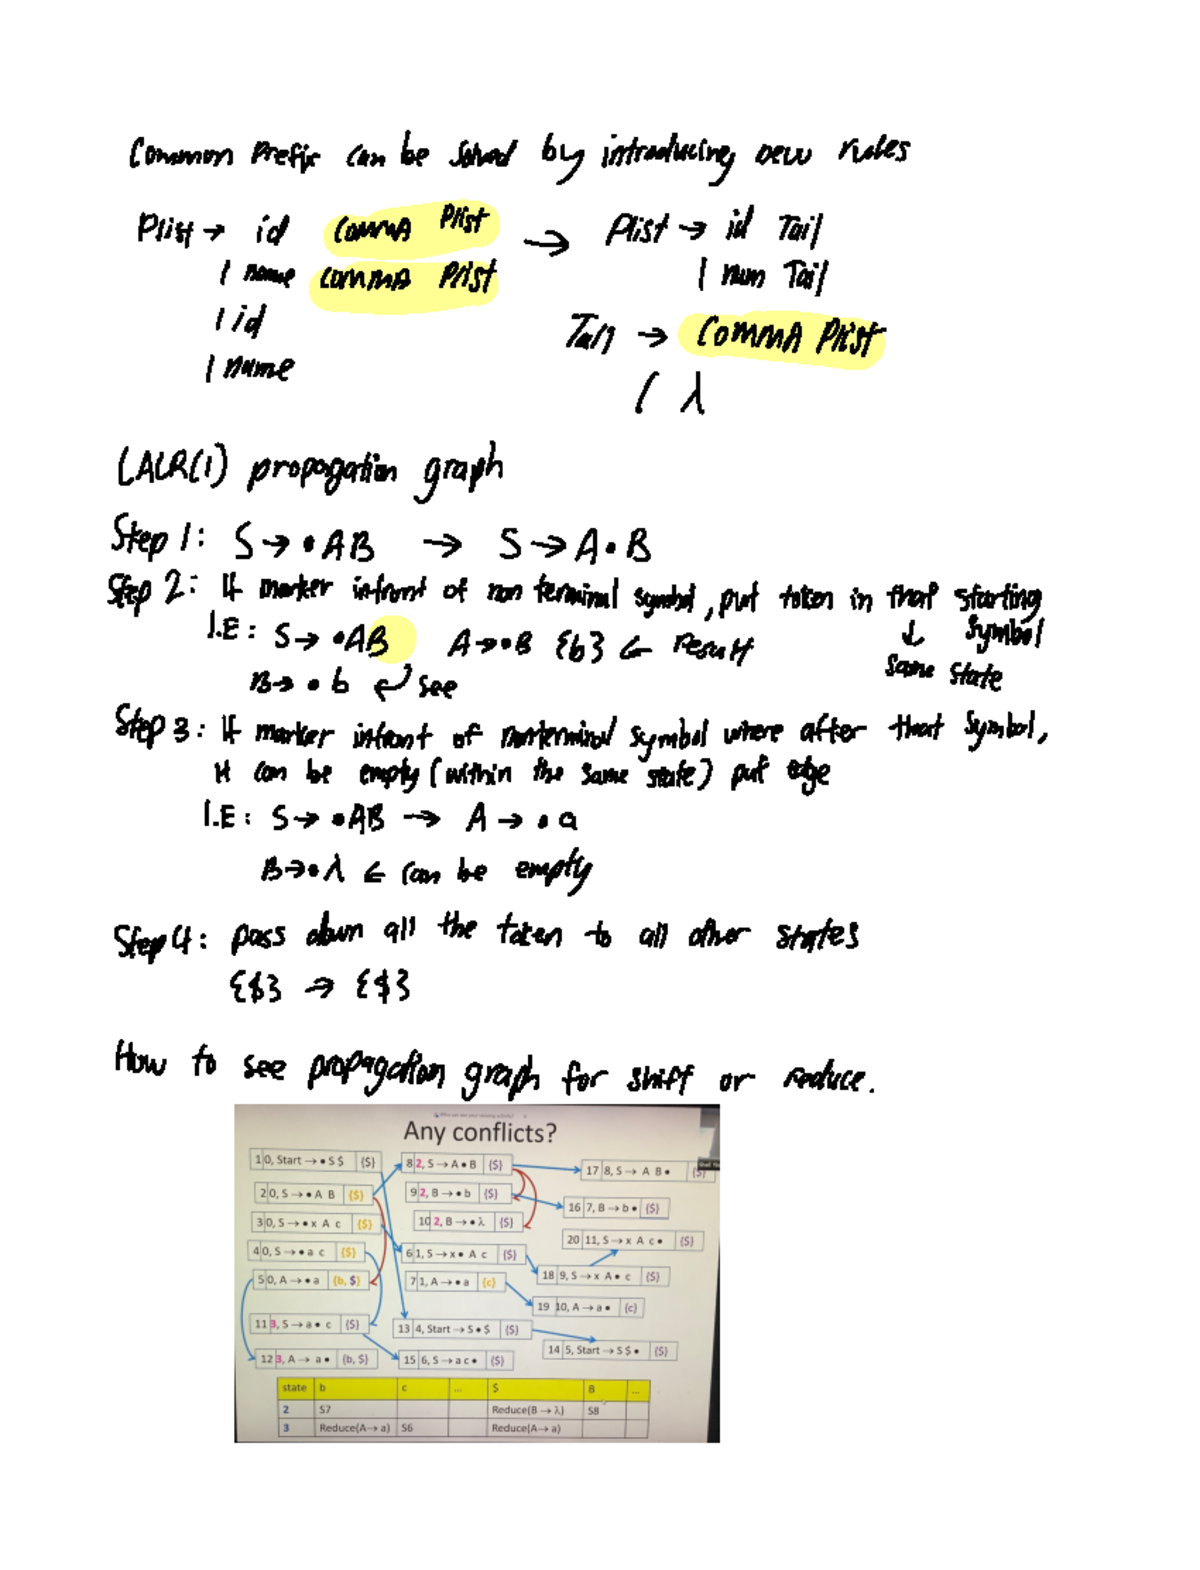 Common Prefix can be solved by introducing new rules
Plist → id COMMA Plist → Plist → id Tail
| name COMMA Plist | num Tail
| id
Tail → COMMA Plist
| name
| λ
LALR(1) propagation graph
Step 1: S → •AB → S → A•B
Step 2: If marker infront of non terminal symbol, put token in that starting symbol
↓ same state
I.E: S → •AB A → •B {b} ← result
B → •b ↵ see
Step 3: If marker infront of nonterminal symbol where after that symbol,
it can be empty (within the same state) put edge
I.E: S → •AB → A → •a
B → •λ ← can be empty
Step 4: pass down all the token to all other states
{$} → {$}
How to see propagation graph for shift or reduce.
Any conflicts?
1 0, Start → • S $ {$}
8 2, S → A • B {$}
17 8, S → A B • {$}
2 0, S → • A B {$}
9 2, B → • b {$}
16 7, B → b • {$}
3 0, S → • x A c {$}
10 2, B → • λ {$}
20 11, S → x A c • {$}
4 0, S → • a c {$}
6 1, S → x • A c {$}
18 9, S → x A • c {$}
5 0, A → • a {b, $}
7 1, A → • a {c}
19 10, A → a • {c}
11 3, S → a • c {$}
13 4, Start → S • $ {$}
14 5, Start → S $ • {$}
12 3, A → a • {b, $}
15 6, S → a c • {$}
state b c ... $ B ...
2 S7 Reduce(B → λ) S8
3 Reduce(A → a) S6 Reduce(A → a)